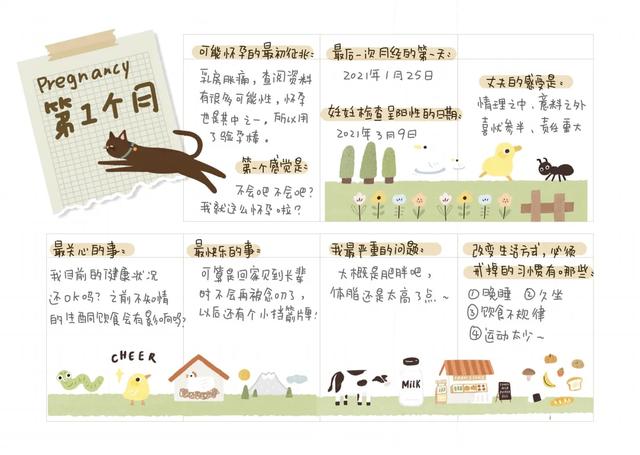 Pregnancy
第1个月
可能怀孕的最初征兆:
乳房胀痛，查阅资料
有很多可能性，怀孕
也是其中之一，所以用
了验孕棒。
第一个感觉是:
不会吧不会吧?
我就这么怀孕啦?
最后一次月经的第一天:
2021年1月25日
妊娠检查呈阳性的日期:
2021年3月9日
丈夫的感受是:
情理之中、意料之外
喜忧参半、责任重大
最关心的事:
我目前的健康状况
还OK吗? 之前不知情
的生酮饮食会有影响吗?
CHEER
最快乐的事:
可算是回家见到长辈
时不会再被念叨了，
以后还有个小挡箭牌!
我最严重的问题:
大概是肥胖吧，
体脂还是太高了点~
MiLK
改变生活方式，必须
戒掉的习惯有哪些:
①晚睡 ②久坐
③饮食不规律
④运动太少~